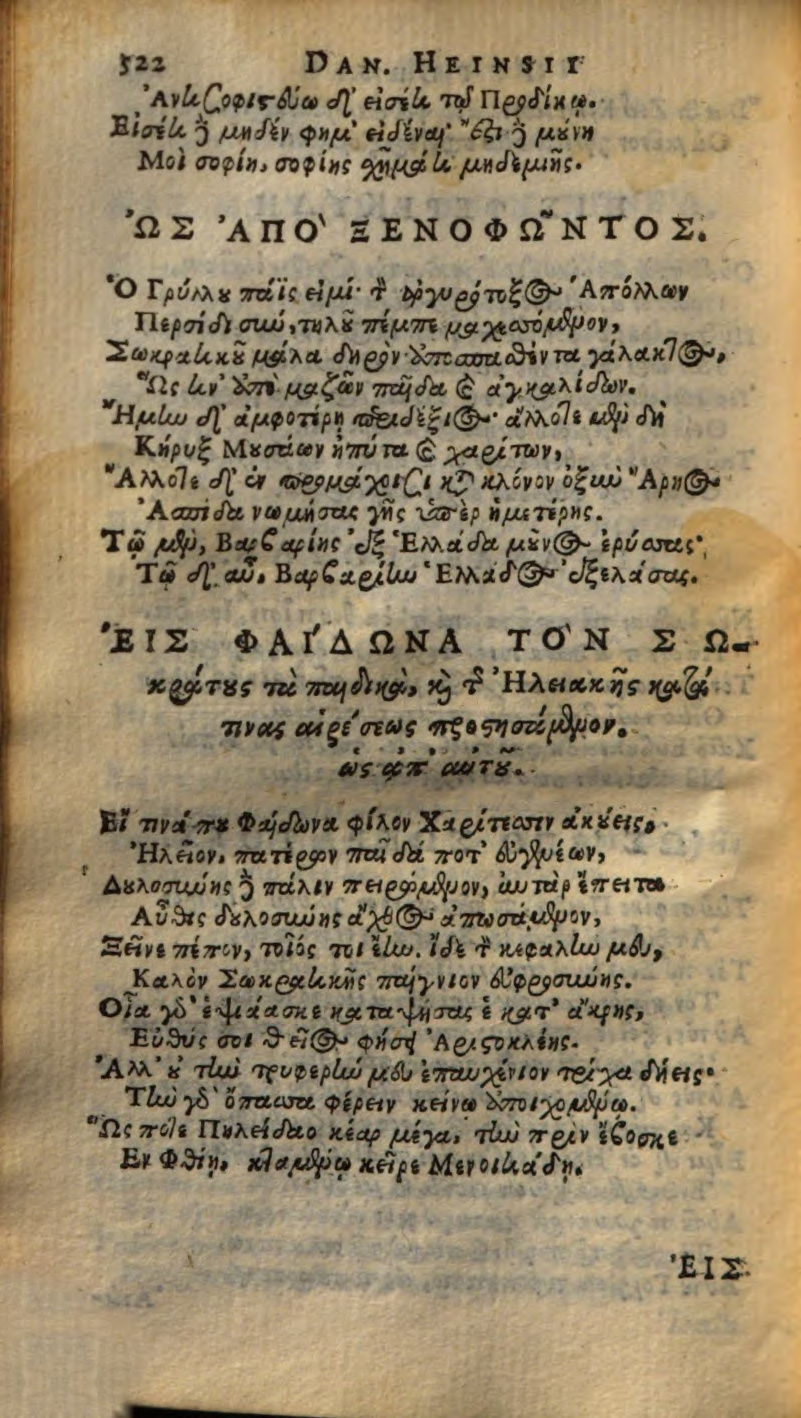 522 DAN. HEINSII
Ἀντισοφιστεύω δ' εἰσέτι τῷ Προδίκῳ.
Εἰσέτι ἢ μηδέν φημ' εἰδέναι· ἔστι ἢ μούνη
Μοὶ σοφίη, σοφίης χῆμά τι μηδεμιῆς.
ὩΣ ἈΠΟ ΞΕΝΟΦΩ͂ΝΤΟΣ.
Ὁ Γρύλλου πάϊς εἰμί· τὸν ἀργυρότοξος Ἀπόλλων
Περσίδι σὺν, τηλοῦ πέμπε μαχεσόμενον,
Σωκρατικοῦ μάλα δηρὸν ὑποσπασθέντα γάλακτος,
Ὥς τιν' ὑπὸ μαζῶν παῖδα καὶ ἀγκαλίδων.
Ἤμην δ' ἀμφοτέρῃ περιδέξιος· ἄλλοτε μὲν δὴ
Κήρυξ Μουσάων ἠπύτα καὶ χαρίτων,
Ἄλλοτε δ' ἐν προμάχοισι κατὰ κλόνον ὀξὺν Ἄρηος
Ἀσπίδα νωμήσας γῆς ὑπὲρ ἡμετέρης.
Τῷ μὲν, Βαρβαρίης ἐξ Ἑλλάδα μῦνος ἐρύσσας·
Τῷ δ' αὖ, Βαρβαρίην Ἑλλάδος ἐξελάσας.
ἘΙΣ ΦΑΊΔΩΝΑ ΤῸΝ ΣΩ-
κράτους τὰ παιδικὰ, καὶ τῆς Ἠλειακῆς κατά
τινας αἱρέσεως προστησάμενον.
ὡς ἀπ' αὐτοῦ.
Εἴ τινά που Φαίδωνα φίλον Χαρίτεσσιν ἀκούεις,
Ἠλεῖον, πατέρων παῖδά ποτ' εὐγενέων,
Δουλοσύνης ἢ πάλιν πειρώμενον, αὐτὰρ ἔπειτα
Αὖθις δουλοσύνης ἄχθος ἀπωσάμενον,
Ξεῖνε πέπον, τοῖός τοι ἔην. ἴδε τὴν κεφαλήν μευ,
Καλὸν Σωκρατικῆς παίγνιον εὐφροσύνης.
Οἷα γὰρ ἑψιάασκε καταψήσας ἑ κατ' ἄκρης,
Εὐθύς σοι θεῖος φήσει Ἀριστοκλέης.
Ἀλλ' οὐ τὴν τρυφερήν μευ ἐπαυχένιον τρίχα δήεις·
Τὴν γὰρ ὄπασσα φέρειν κείνῳ ὑποιχομένῳ.
Ὥς ποτε Πηλείδαο κέαρ μέγα, τὴν πρὶν ἔβοσκε
Ἐν Φθίῃ, κταμένῳ κεῖρε Μενοιτιάδῃ.
ἘΙΣ